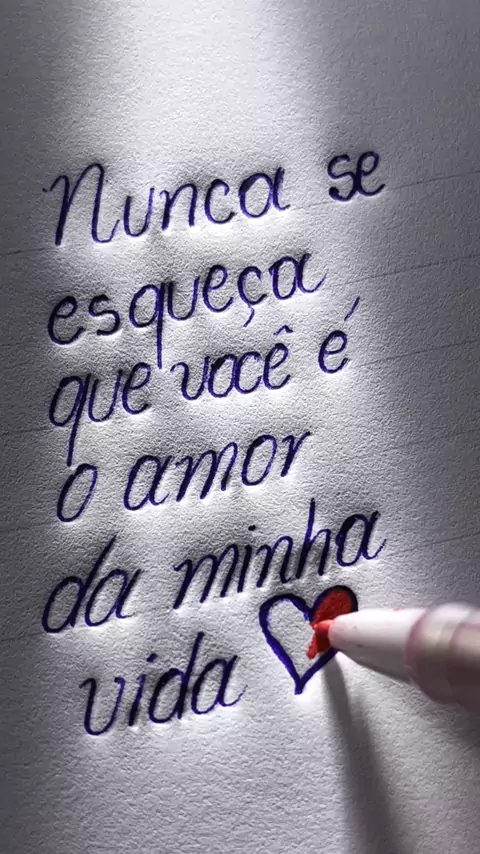 Nunca se
esqueça
que você é
o amor
da minha
vida